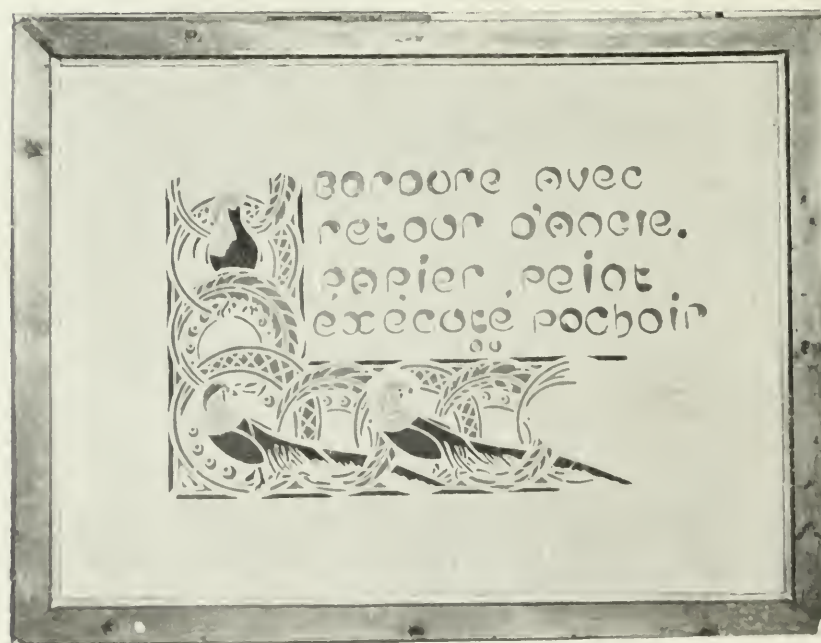 Bordure avec
retour d'angle.
papier peint
éxécuté pochoir
au